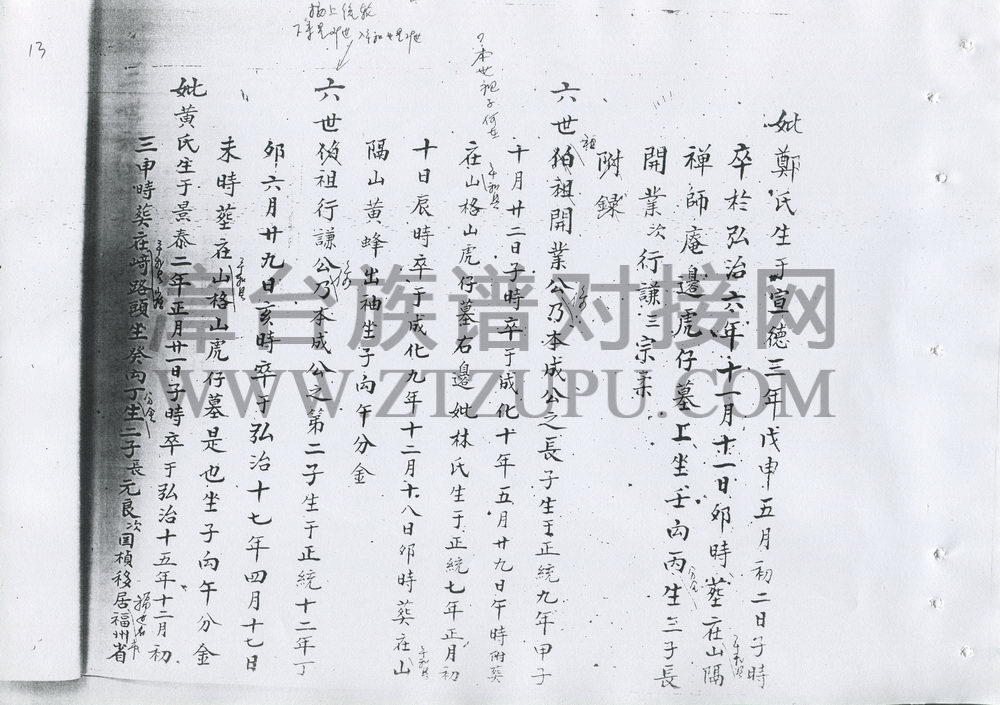 妣鄭氏生于宣德三年戊申五月初二日子時
卒於弘治六年十一月十一日卯時塟在山隔
禅師庵邊虎仔墓上坐壬向丙生三子長
開業次行謙三宗柔
附録
六世伯祖開業公乃本成公之長子生于正統九年甲子
十月廿二日子時卒于成化十年五月廿九日午時附葬
在山格山虎仔墓右邊妣林氏生于正統七年正月初
十日辰時卒于成化九年十二月十八日卯時葬在山
隔山黄蜂出袖坐子向午分金
六世伯祖行謙公乃本成公之第二子生于正統十二年丁
卯六月廿九日亥時卒于弘治十七年四月十七日
未時塟在山格山虎仔墓是也坐子向午分金
妣黄氏生于景泰二年正月廿一日子時卒于弘治十五年十二月初
三申時葬在﨑路頭坐癸向丁生二子長元良次国楨移居福州省
13
漳台族谱对接网
WWW.ZTZUPU.COM